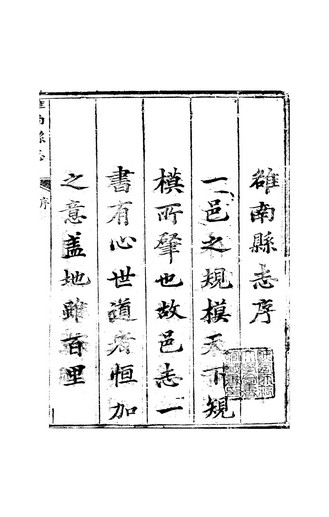 雒南縣志序
一邑之規模天下規
模所肇也故邑志一
書有心世道者恒加
之意盖地雖百里